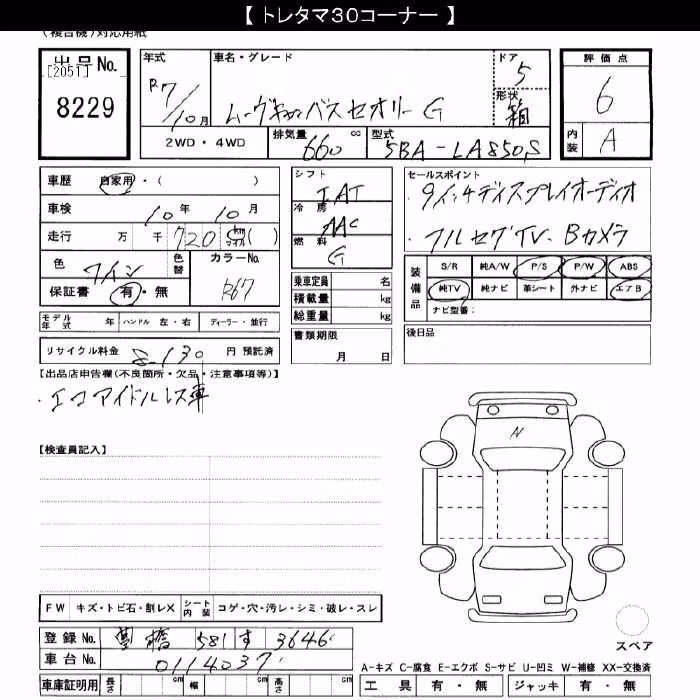 【 トレタマ30コーナー 】
(複合機)対応用紙
出品No.
[2051]
8229
年式
R7/10月
車名・グレード
ムーヴキャンバス セオリー G
ドア
5
形状
箱
評価点
6
内装
A
2WD・4WD
排気量
660 cc
型式
5BA-LA850S
車歴 自家用・( )
車検 10年 10月
走行 万 千 720 km マイル ( )
色 ワイン
色替
カラーNo.
R67
保証書 有・無
シフト
IAT
冷房
AAC
燃料
G
セールスポイント
9インチディスプレイオーディオ
フルセグTV、Bカメラ
乗車定員 名
積載量 kg
総重量 kg
装備品
S/R 純A/W P/S P/W ABS
純TV 純ナビ 革シート 外ナビ エアB
ナビ型番:
モデル年式 年 ハンドル 左・右 ディーラー・並行
書類期限
月 日
後日品
リサイクル料金 8,130 円 預託済
【出品店申告欄(不良箇所・欠品・注意事項等)】
・エコアイドルレス車
【検査員記入】
N
FW キズ・トビ石・割レX シート内装 コゲ・穴・汚レ・シミ・破レ・スレ
登録No. 豊橋 581 す 3646
車台No. 0114037
スペア
A-キズ C-腐食 E-エクボ S-サビ U-凹ミ W-補修 XX-交換済
車庫証明用 長さ cm 幅 cm 高さ cm
工具 有・無 ジャッキ 有・無